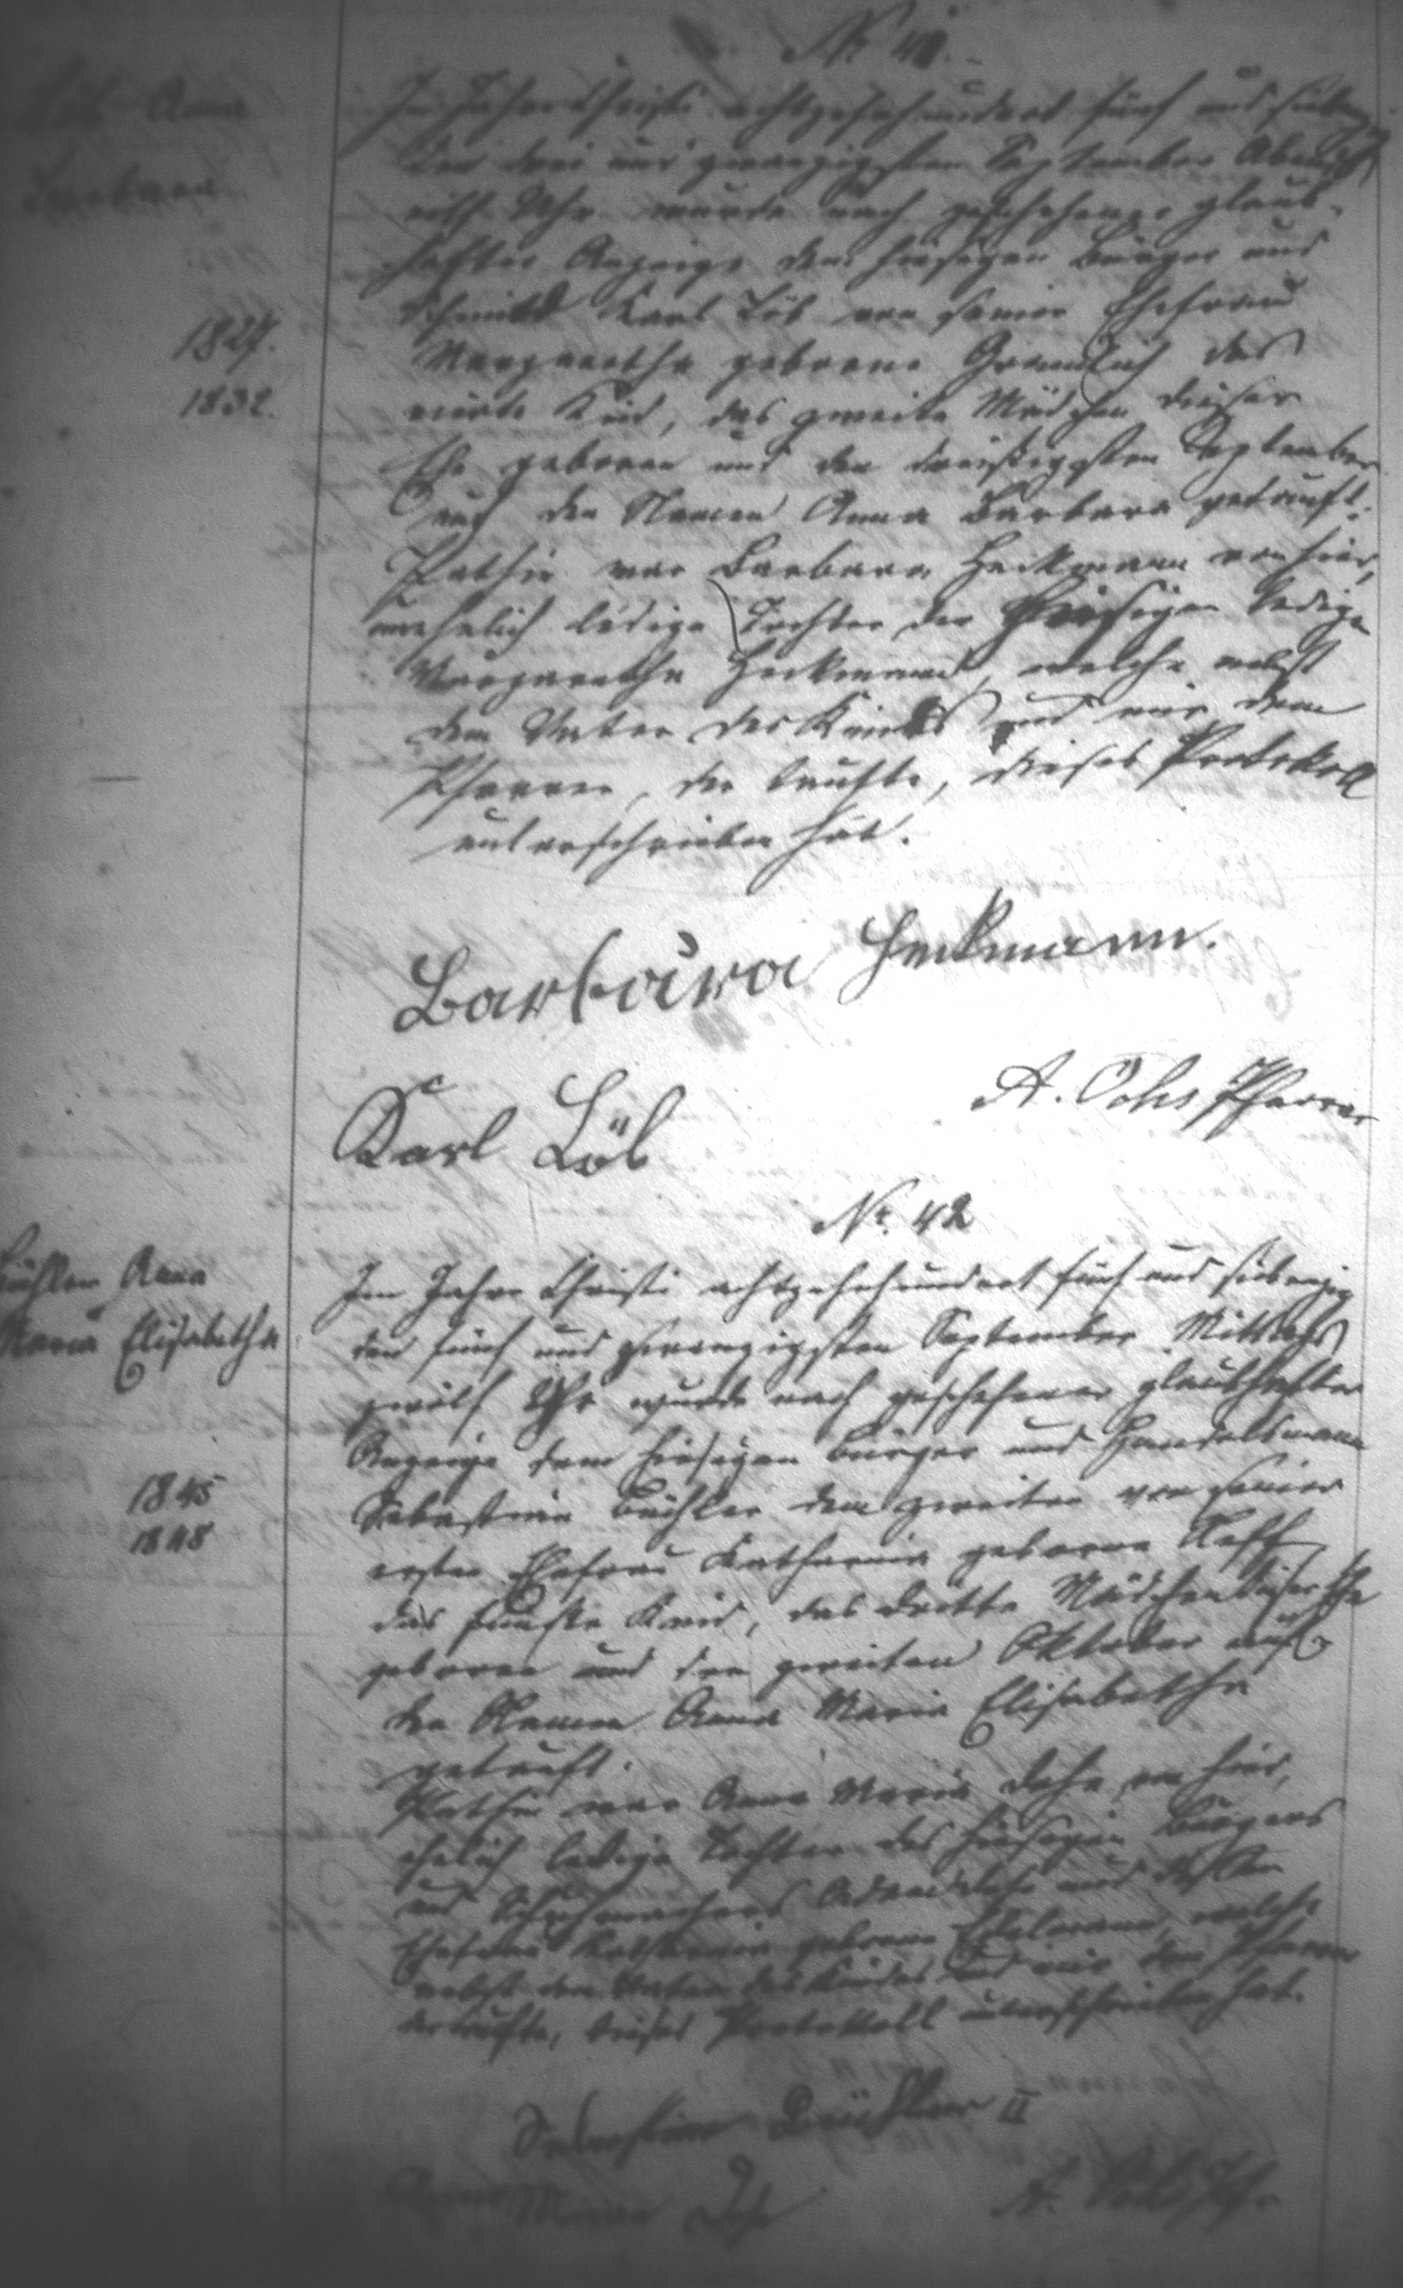 Nr. 41.
Löb Anna
Barbara
1827.
1832.
Im Jahre Christi achtzehnhundert fünf und siebenzig
den drei und zwanzigsten September Abends
Uhr wurde nach geschehener glaub-
hafter Anzeige dem hiesigen Bürger und
Schmied Karl Löb von seiner Ehefrau
Margarethe geborene das
vierte Kind, das zweite Mädchen dieser
Ehe geboren und den dreißigsten September
auf den Namen Anna Barbara getauft.
Pathin war Barbara Heckmann von hier,
unehelich ledige Tochter der hiesigen ledigen
Margaretha Heckmann, welche nebst
dem Vater des Kindes und mir dem
Pfarrer, der taufte, dieses Protokoll
unterschrieben hat.
Barbara Heckmann.
A. Pfarrer
Karl Löb
Nr. 42
Büchler Anna
Maria Elisabetha
1845
1848
Im Jahre Christi achtzehnhundert fünf und siebenzig
den fünf und zwanzigsten September Mittags
zwölf Uhr wurde nach geschehener glaubhafter
Anzeige dem hiesigen Bürger und Handelsmann
Sebastian Büchler dem zweiten von seiner
ersten Ehefrau Katharina geborene
das fünfte Kind, das dritte Mädchen dieser Ehe
geboren und den zweiten Oktober auf
den Namen Anna Maria Elisabetha
getauft.
Pathin war Anna Maria von hier,
ehelich ledige Tochter des hiesigen Bürgers
und Schuhmachers und dessen
Ehefrau Katharina geborene welche
nebst dem Vater des Kindes und mir dem Pfarrer
der taufte, dieses Protokoll unterschrieben hat.
Sebastian Büchler II
Anna Maria
A. Pfr.